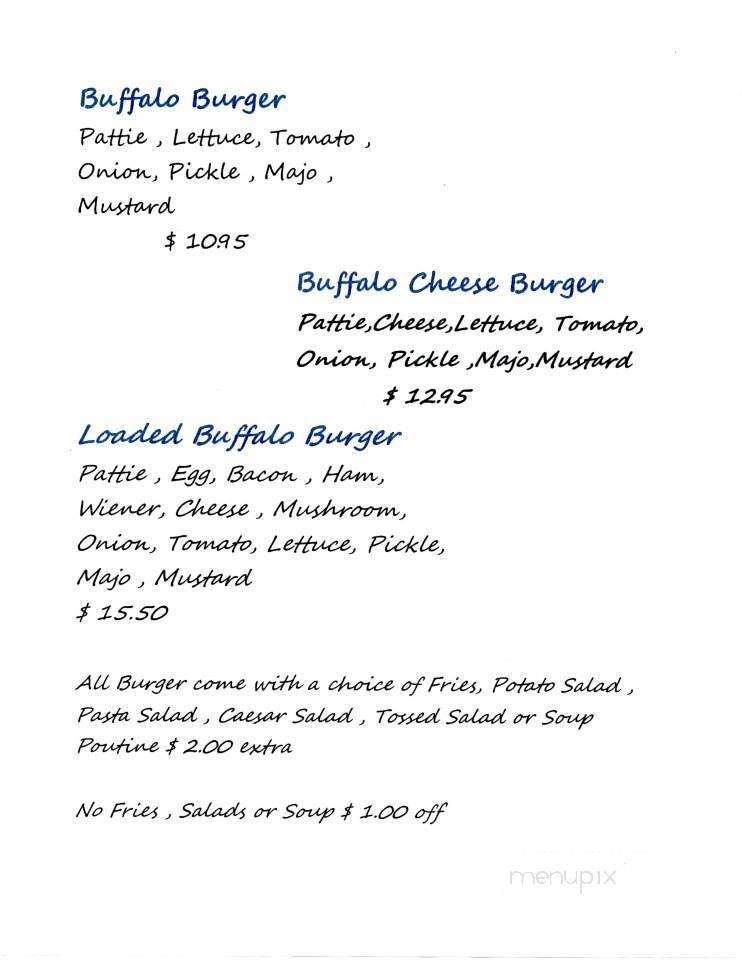 Buffalo Burger
Pattie , Lettuce, Tomato ,
Onion, Pickle , Majo ,
Mustard
$ 10.95
Buffalo Cheese Burger
Pattie,Cheese,Lettuce, Tomato,
Onion, Pickle ,Majo,Mustard
$ 12.95
Loaded Buffalo Burger
Pattie , Egg, Bacon , Ham,
Wiener, Cheese , Mushroom,
Onion, Tomato, Lettuce, Pickle,
Majo , Mustard
$ 15.50
All Burger come with a choice of Fries, Potato Salad ,
Pasta Salad , Caesar Salad , Tossed Salad or Soup
Poutine $ 2.00 extra
No Fries , Salads or Soup $ 1.00 off
menupix